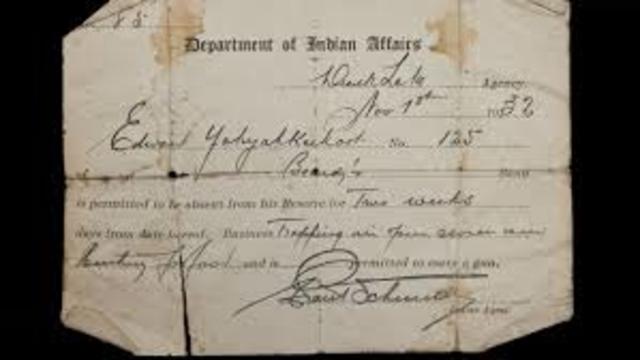 85
Department of Indian Affairs
Duck Lake Agency
Nov 1st 1932
Edward Yahyahkeekoot No. 125
of Beardy's Band
is permitted to be absent from his Reserve for Two weeks
days from date hereof. Business Trapping in open season and
hunting for food and is permitted to carry a gun.
Indian Agent.